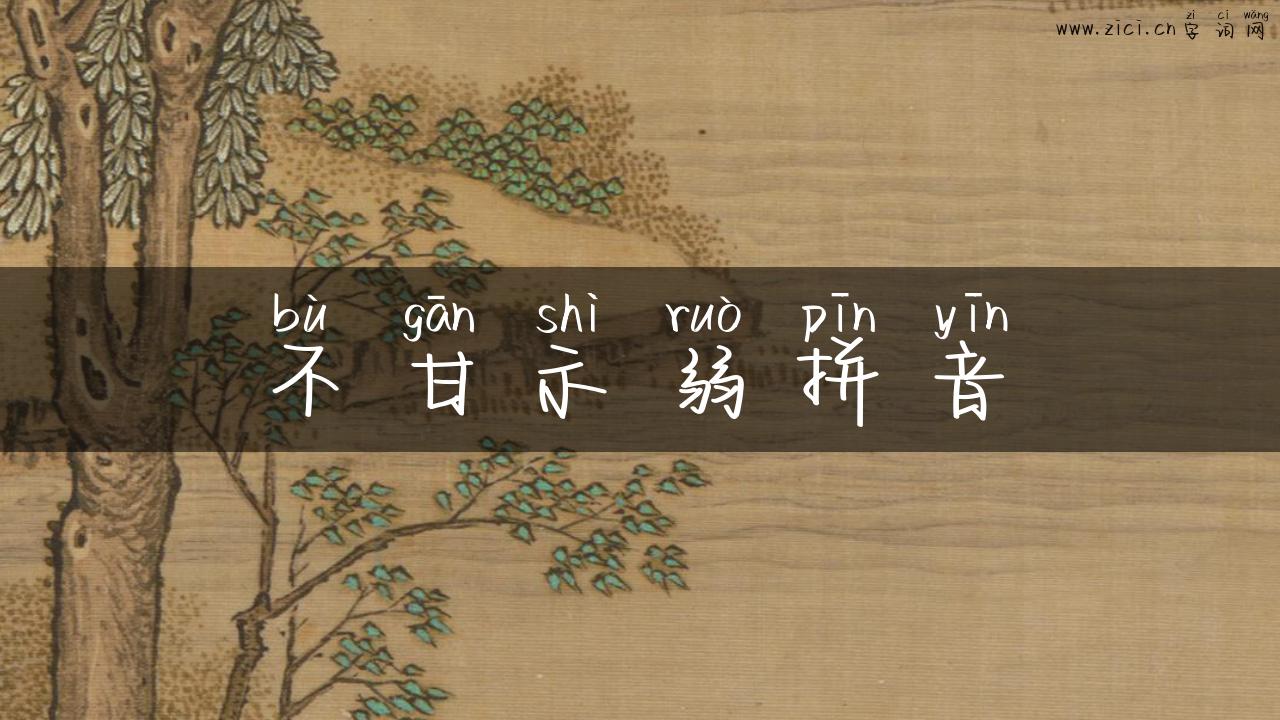 zì cí wǎng
www.zici.cn 字 词 网
bù gān shì ruò pīn yīn
不 甘 示 弱 拼 音